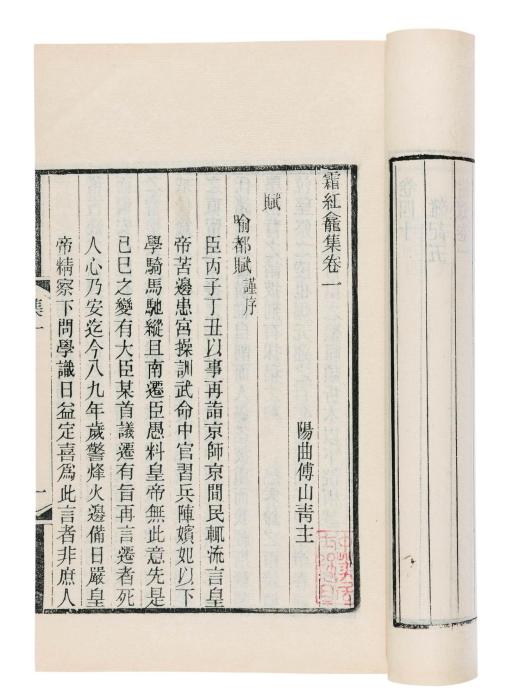 霜紅龕集卷一
陽曲傅山青主
賦
喻都賦謹序
臣丙子丁丑以事再詣京師京間民輒流言皇
帝苦邊患宮操訓武命中官習兵陣嬪妃以下
學騎馬馳縱且南遷臣愚料皇帝無此意先是
已巳之變有大臣某首議遷有旨再言遷者死
人心乃安迄今八九年歲警烽火邊備日嚴皇
帝精察下問學識日益定喜爲此言者非庶人
集一
一